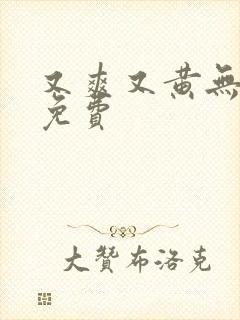 又爽又黄無
免費
大贊布洛克